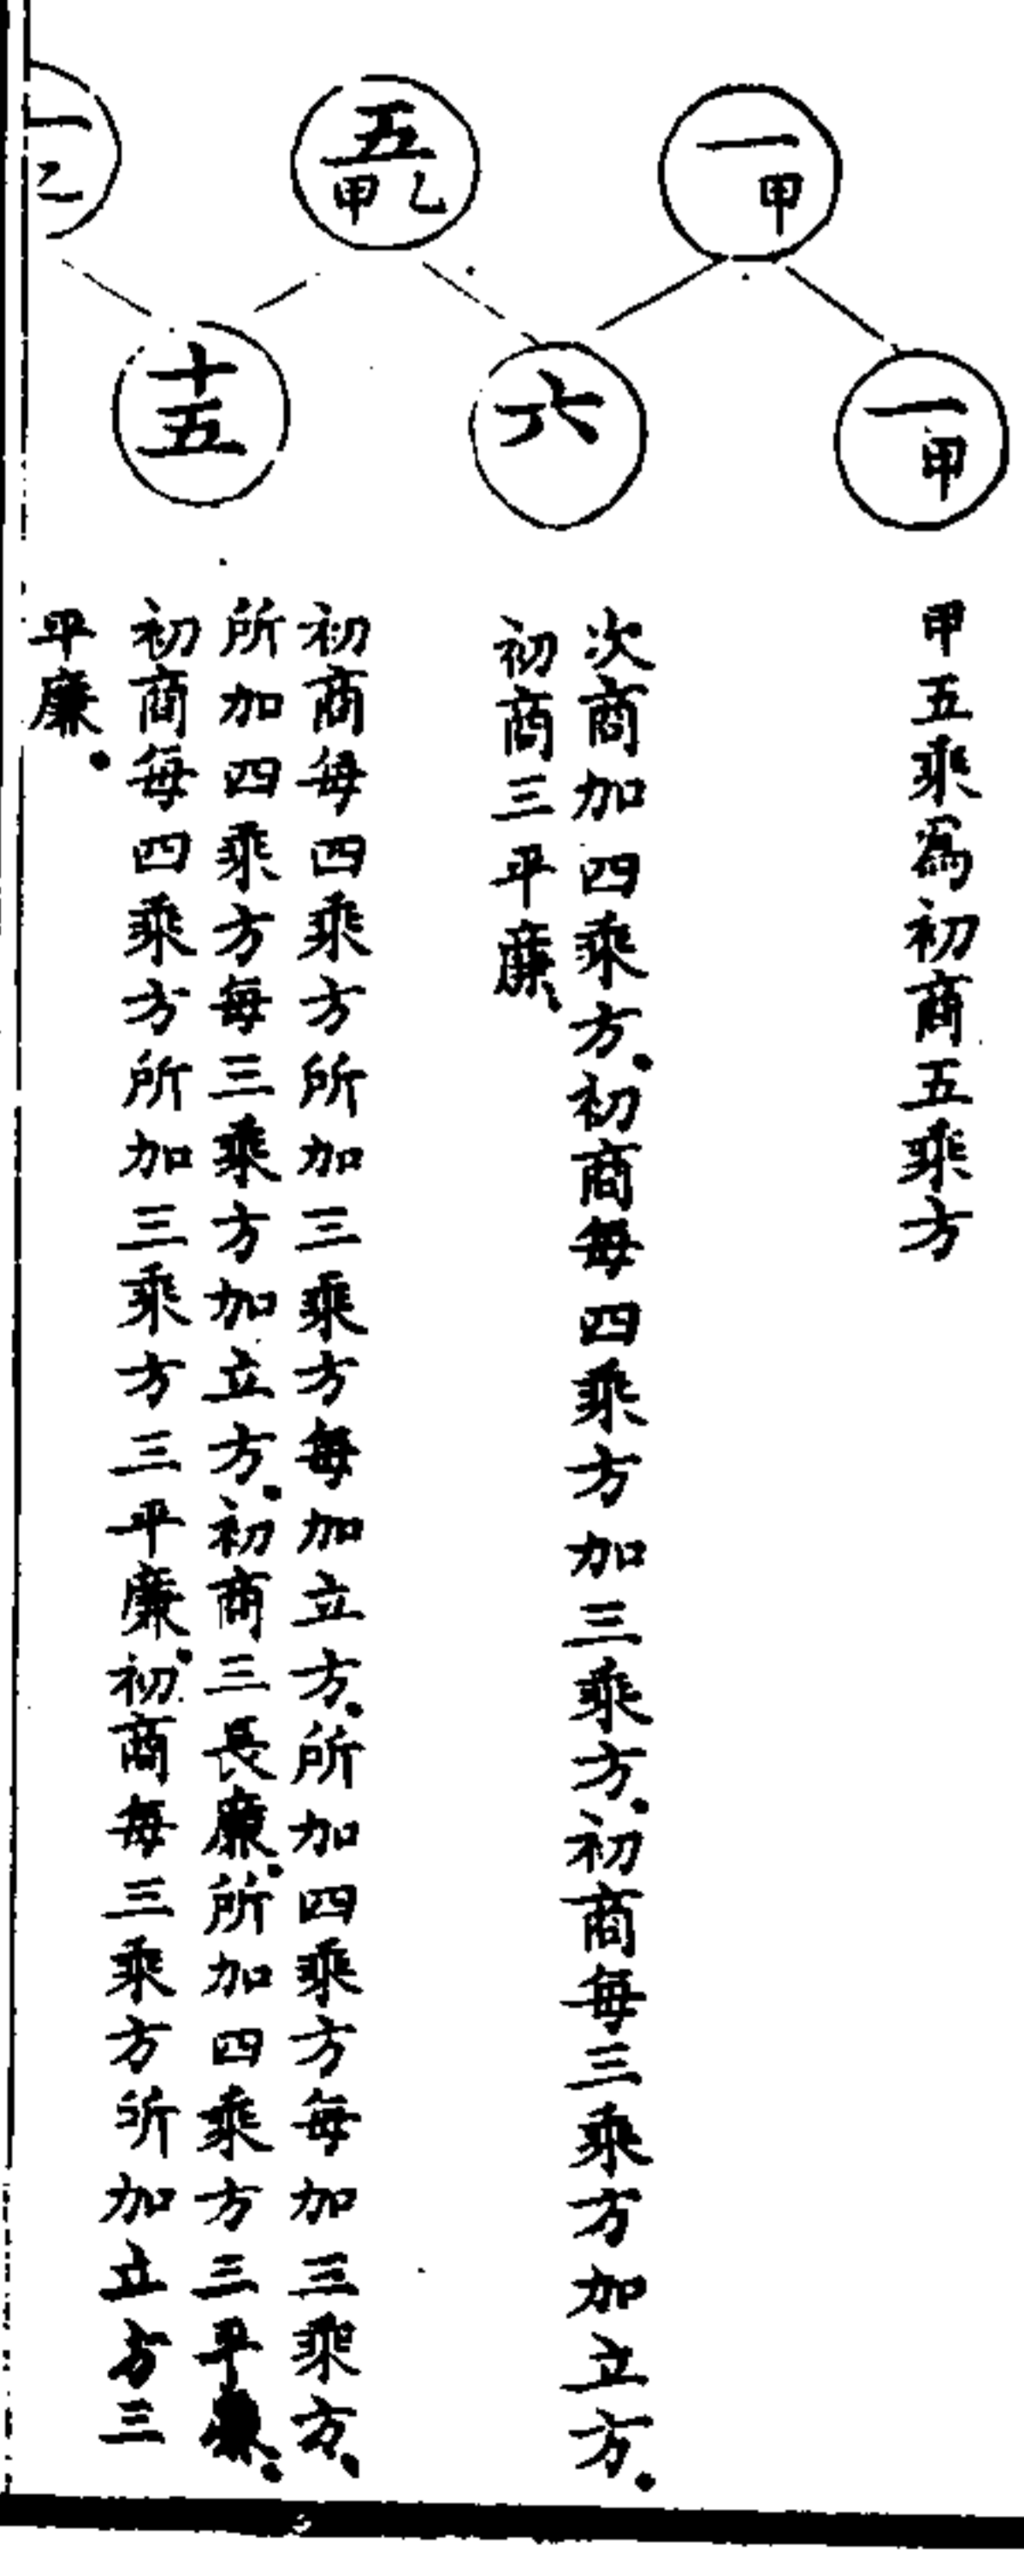 一甲
五甲乙
一甲
六
十五
甲五乘爲初商五乘方
次商加四乘方初商每四乘方加三乘方初商每三乘方加立方
初商三平廉
初商每四乘方所加三乘方每加立方所加四乘方每加三乘方
所加四乘方每三乘方加立方初商三長廉所加四乘方三平廉
初商每四乘方所加三乘方三平廉初商每三乘方所加立方三
平廉